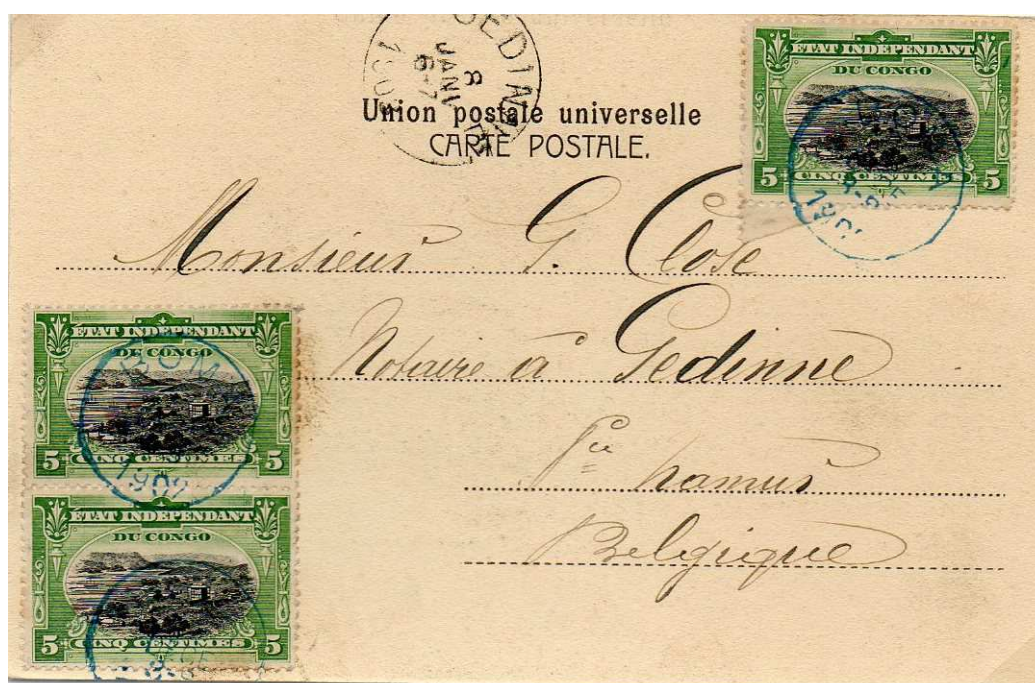 GEDINNE
8
JANV
6-7
Union postale universelle
CARTE POSTALE.
ÉTAT INDÉPENDANT
DU CONGO
5 CINQ CENTIMES 5
BOMA
Monsieur G. Close
Notaire à Gedinne
Pce Namur
Belgique
ÉTAT INDÉPENDANT
DU CONGO
5 CINQ CENTIMES 5
BOMA
1902
ÉTAT INDÉPENDANT
DU CONGO
5 CINQ CENTIMES 5